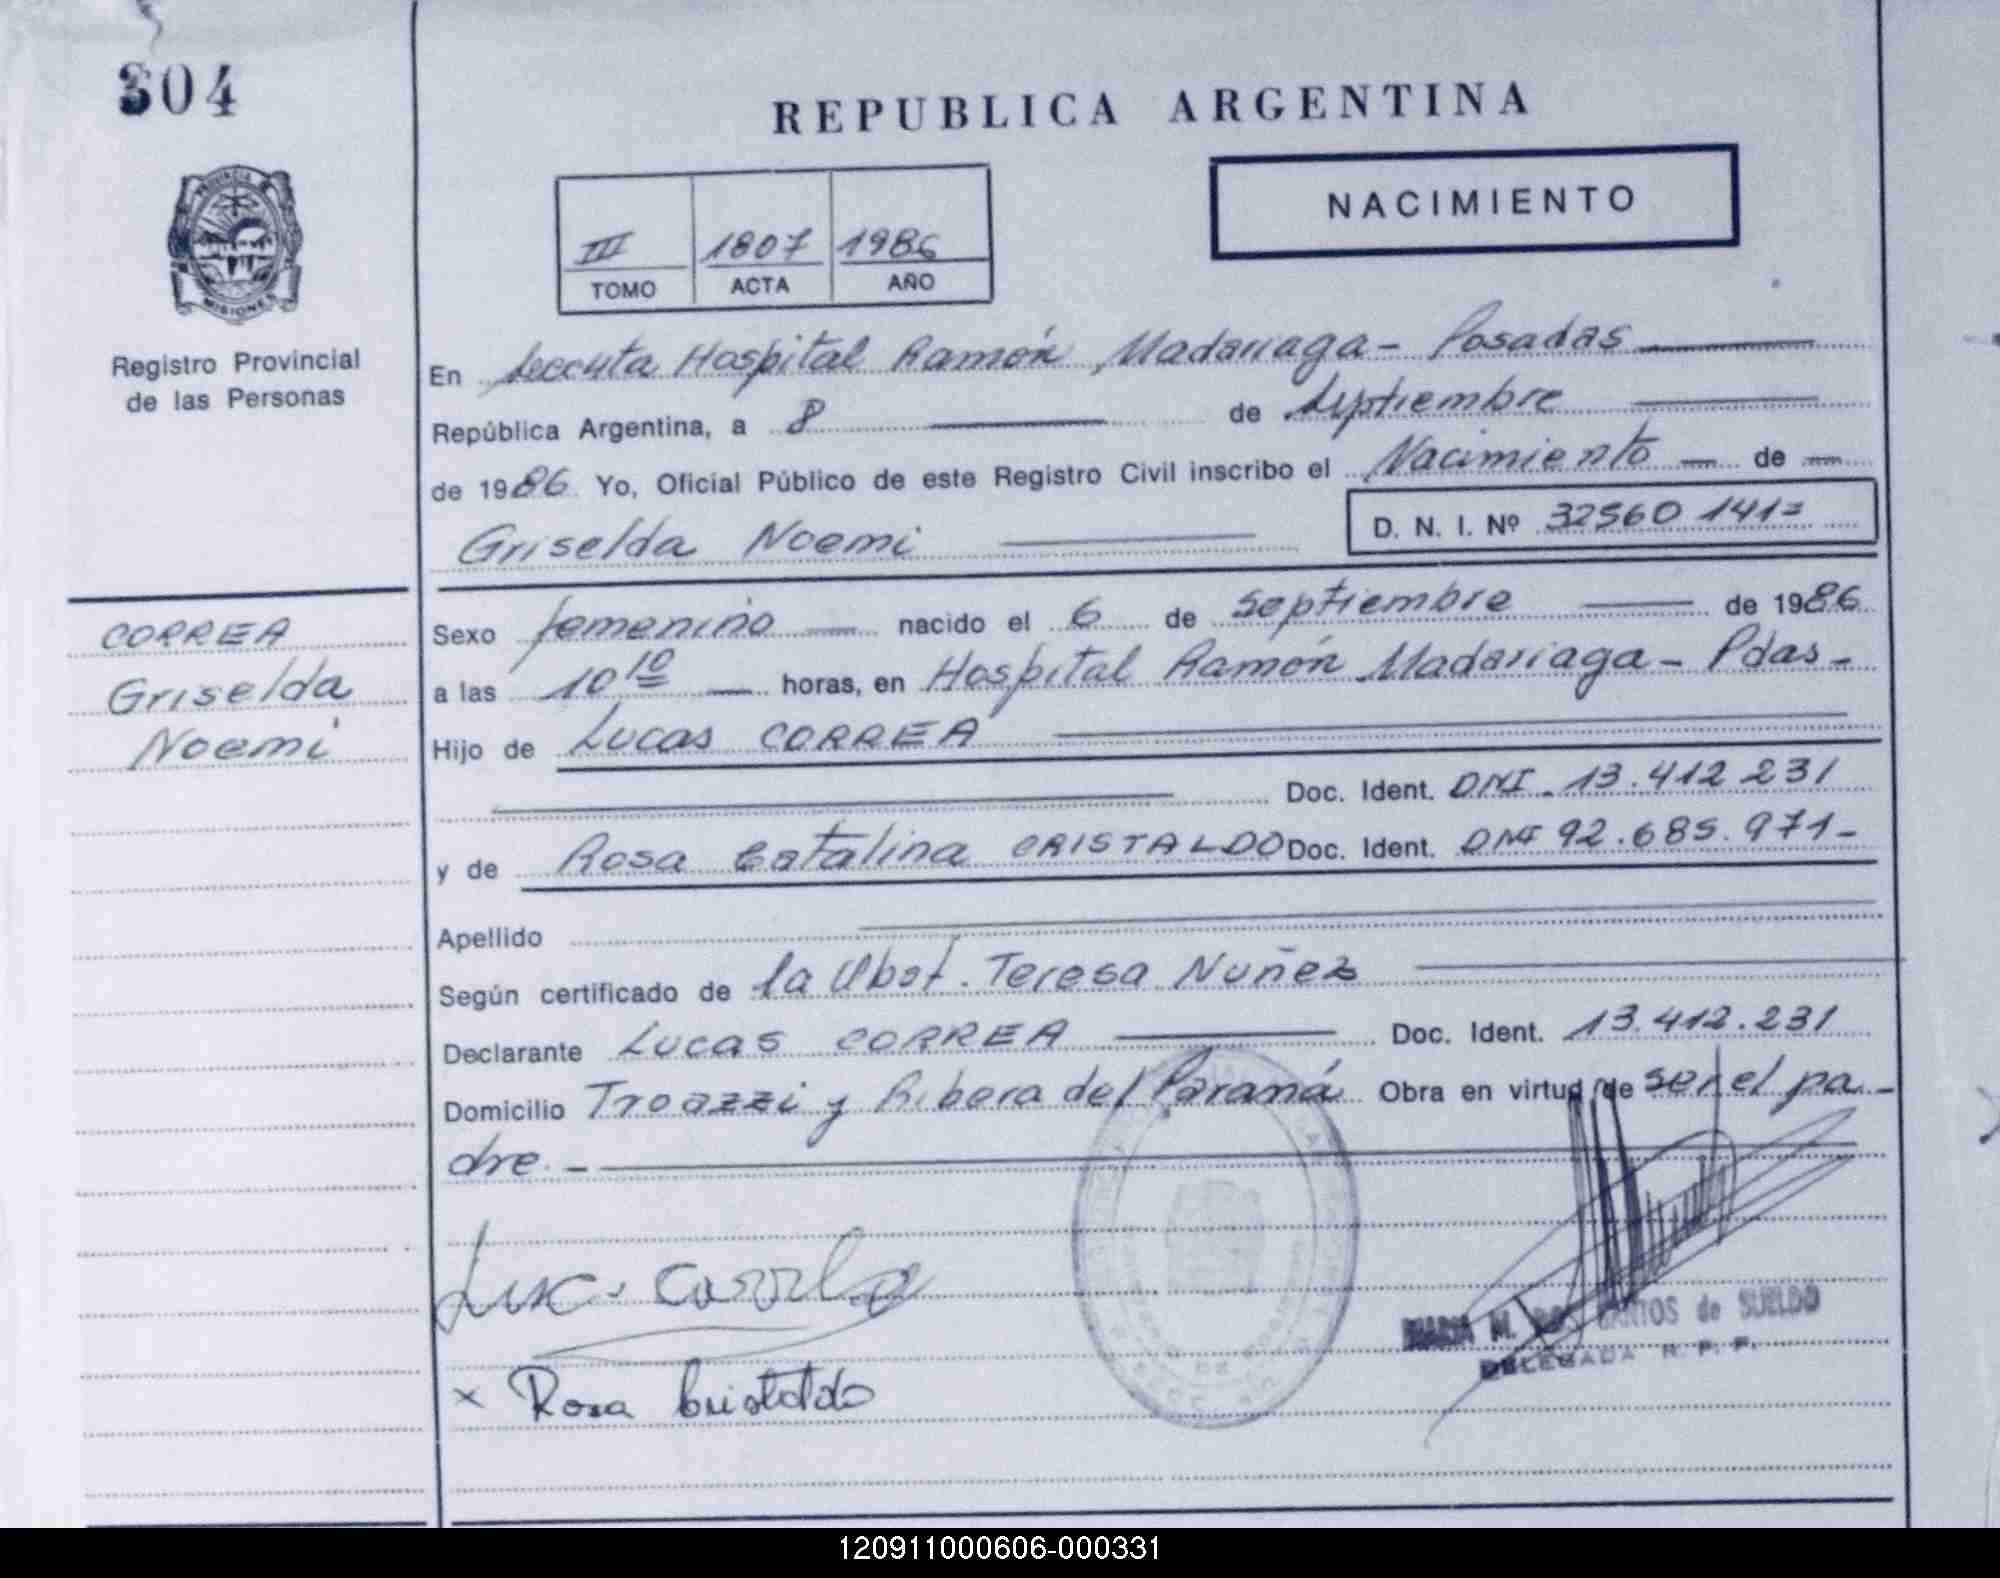 304
REPUBLICA ARGENTINA
NACIMIENTO
III 1807 1986
TOMO ACTA AÑO
PROVINCIA DE
MISIONES
Registro Provincial
de las Personas
En Hospital Ramón Madariaga - Posadas
República Argentina, a 8 de Septiembre
de 1986 Yo, Oficial Público de este Registro Civil inscribo el Nacimiento de
Griselda Noemi D. N. I. Nº 32560 141=
CORREA
Griselda
Noemi
Sexo femenino nacido el 6 de septiembre de 1986
a las 10 10 horas, en Hospital Ramón Madariaga - Pdas -
Hijo de Lucas CORREA
Doc. Ident. DNI. 13.412 231
y de Rosa Catalina CRISTALDO Doc. Ident. DNI 92.685.971-
Apellido
Según certificado de la Obst. Teresa Nuñez
Declarante Lucas CORREA Doc. Ident. 13.412.231
Domicilio Troazzi y Ribera del Paraná Obra en virtud de ser el pa-
dre.-
x Rosa Cristaldo
MARIA M. DOS SANTOS de SUELDO
DELEGADA R. P. P.
120911000606-000331